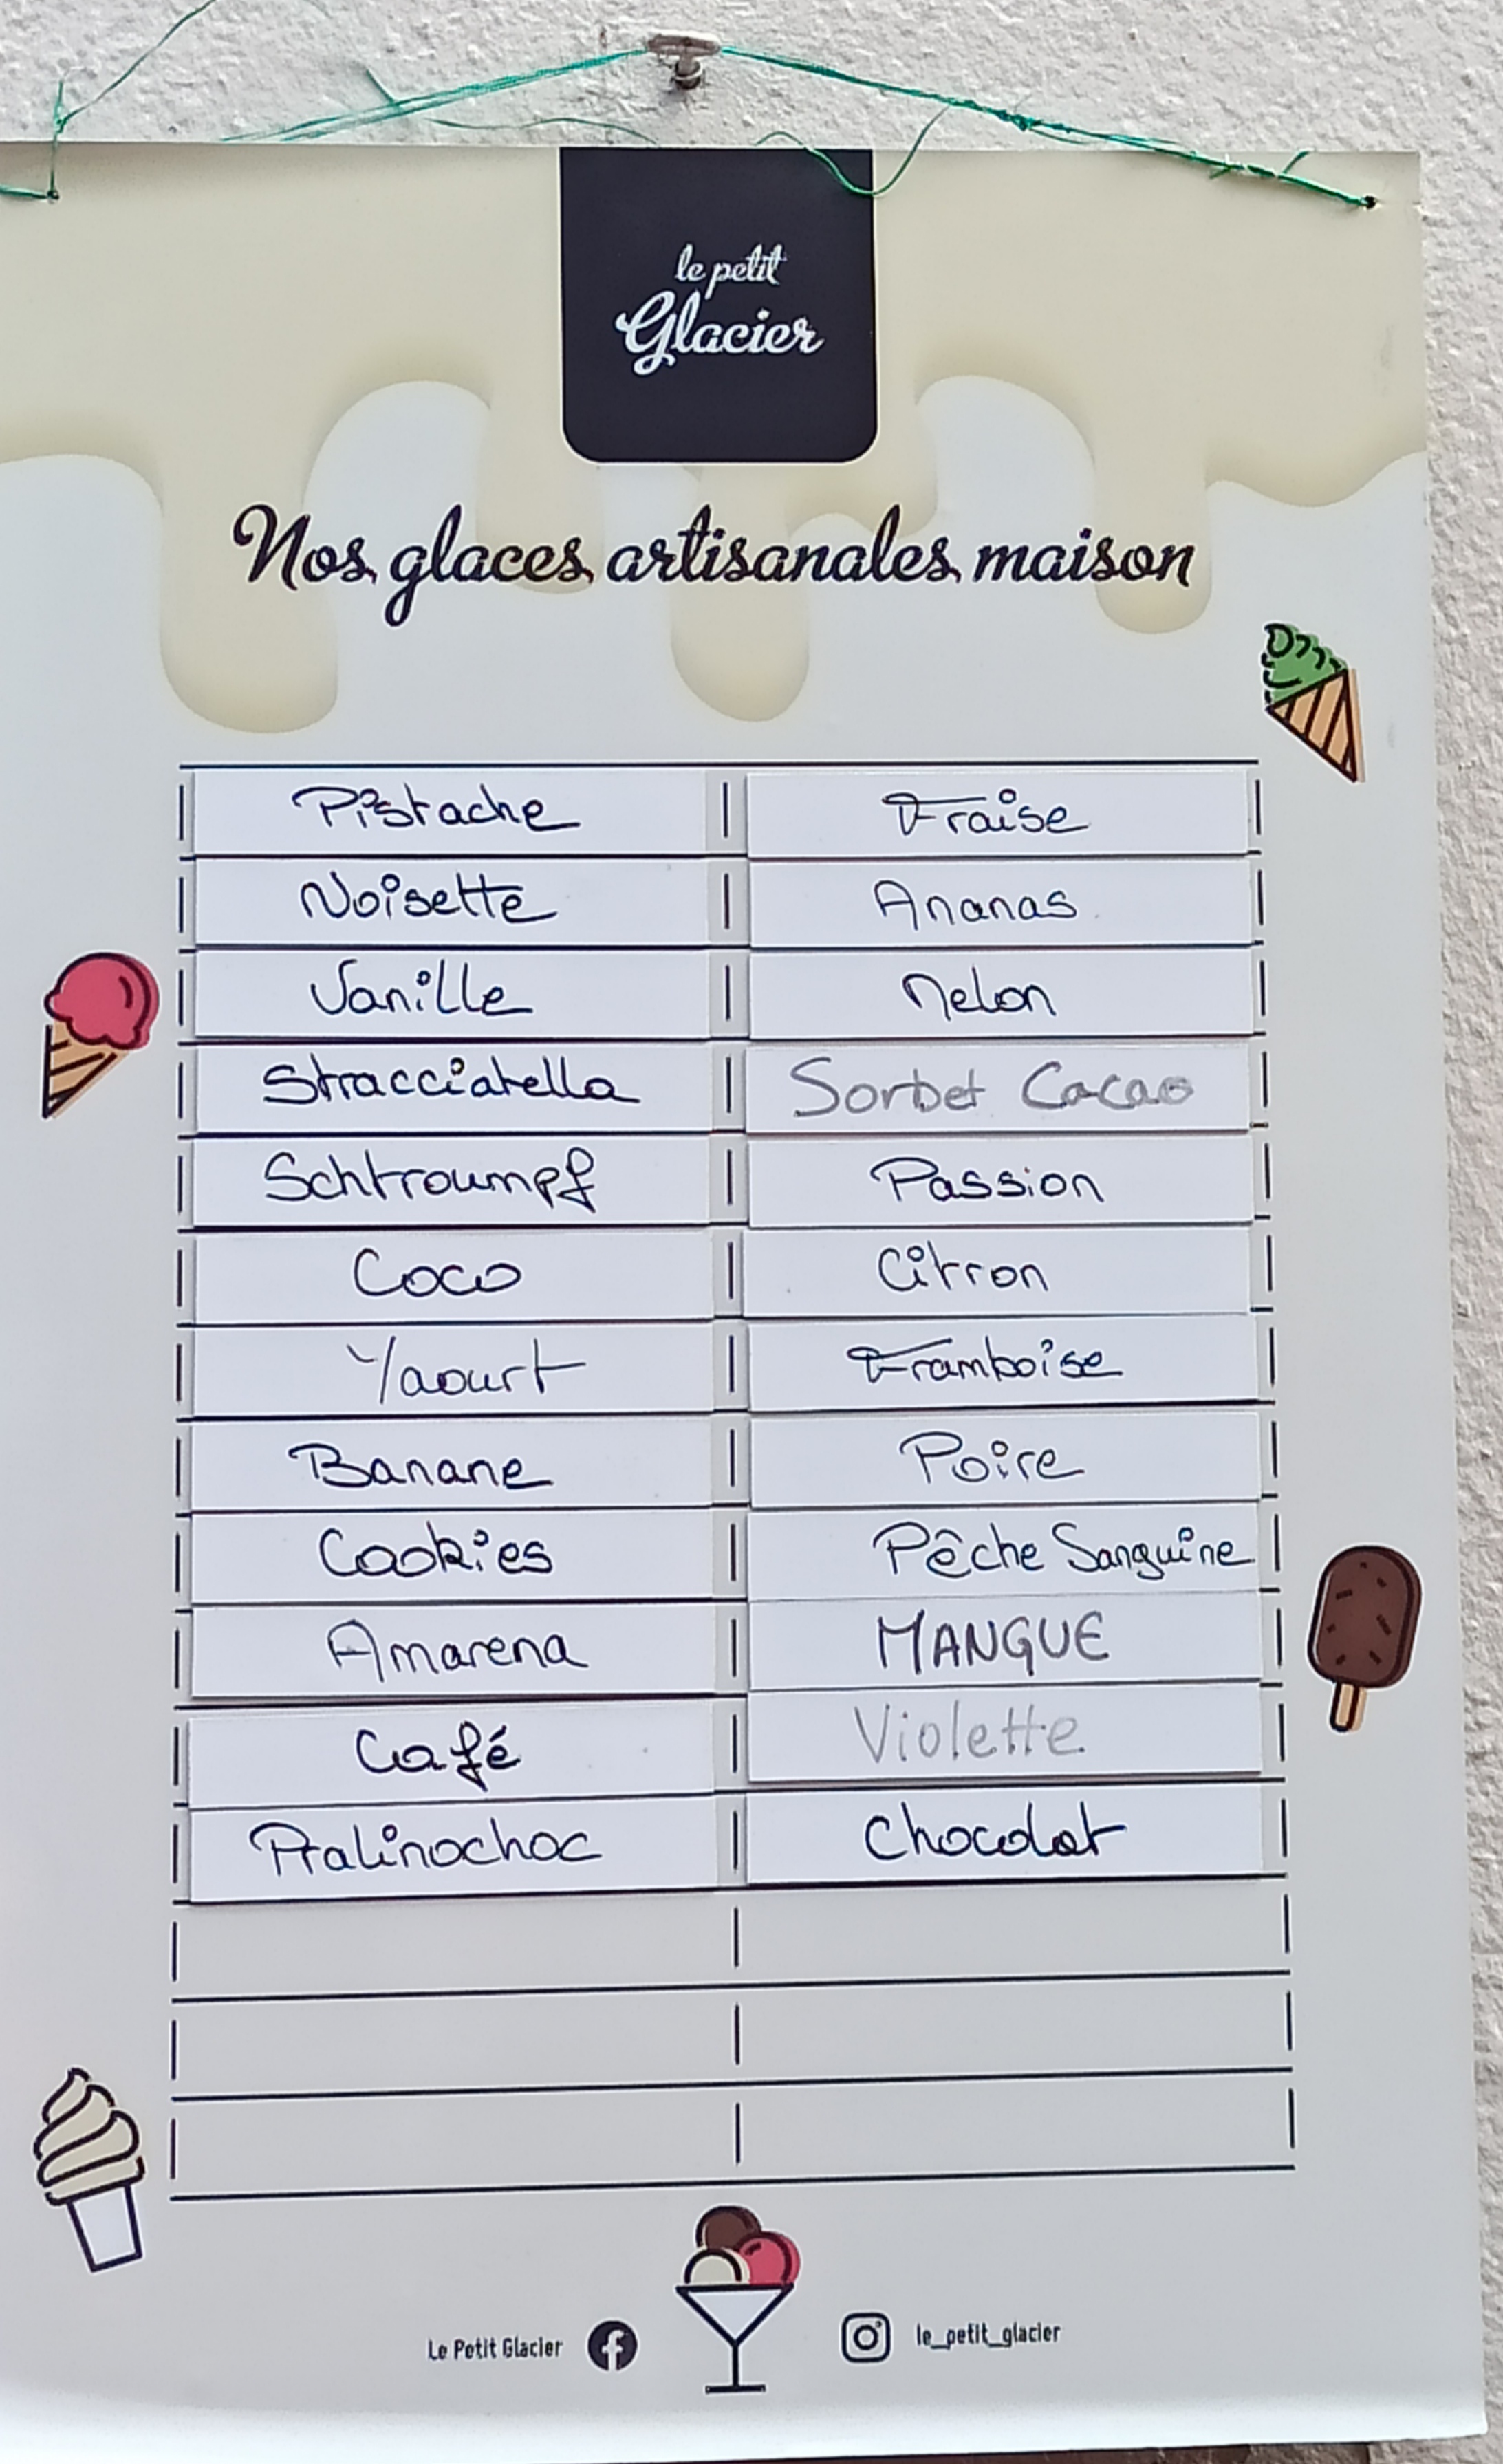 le petit
Glacier
Nos glaces artisanales maison
Pistache
Fraise
Noisette
Ananas
Vanille
Melon
Stracciatella
Sorbet Cacao
Schtroumpf
Passion
Coco
Citron
Yaourt
Framboise
Banane
Poire
Cookies
Pêche Sanguine
Amarena
MANGUE
Café
Violette
Pralinochoc
Chocolat
Le Petit Glacier
le_petit_glacier